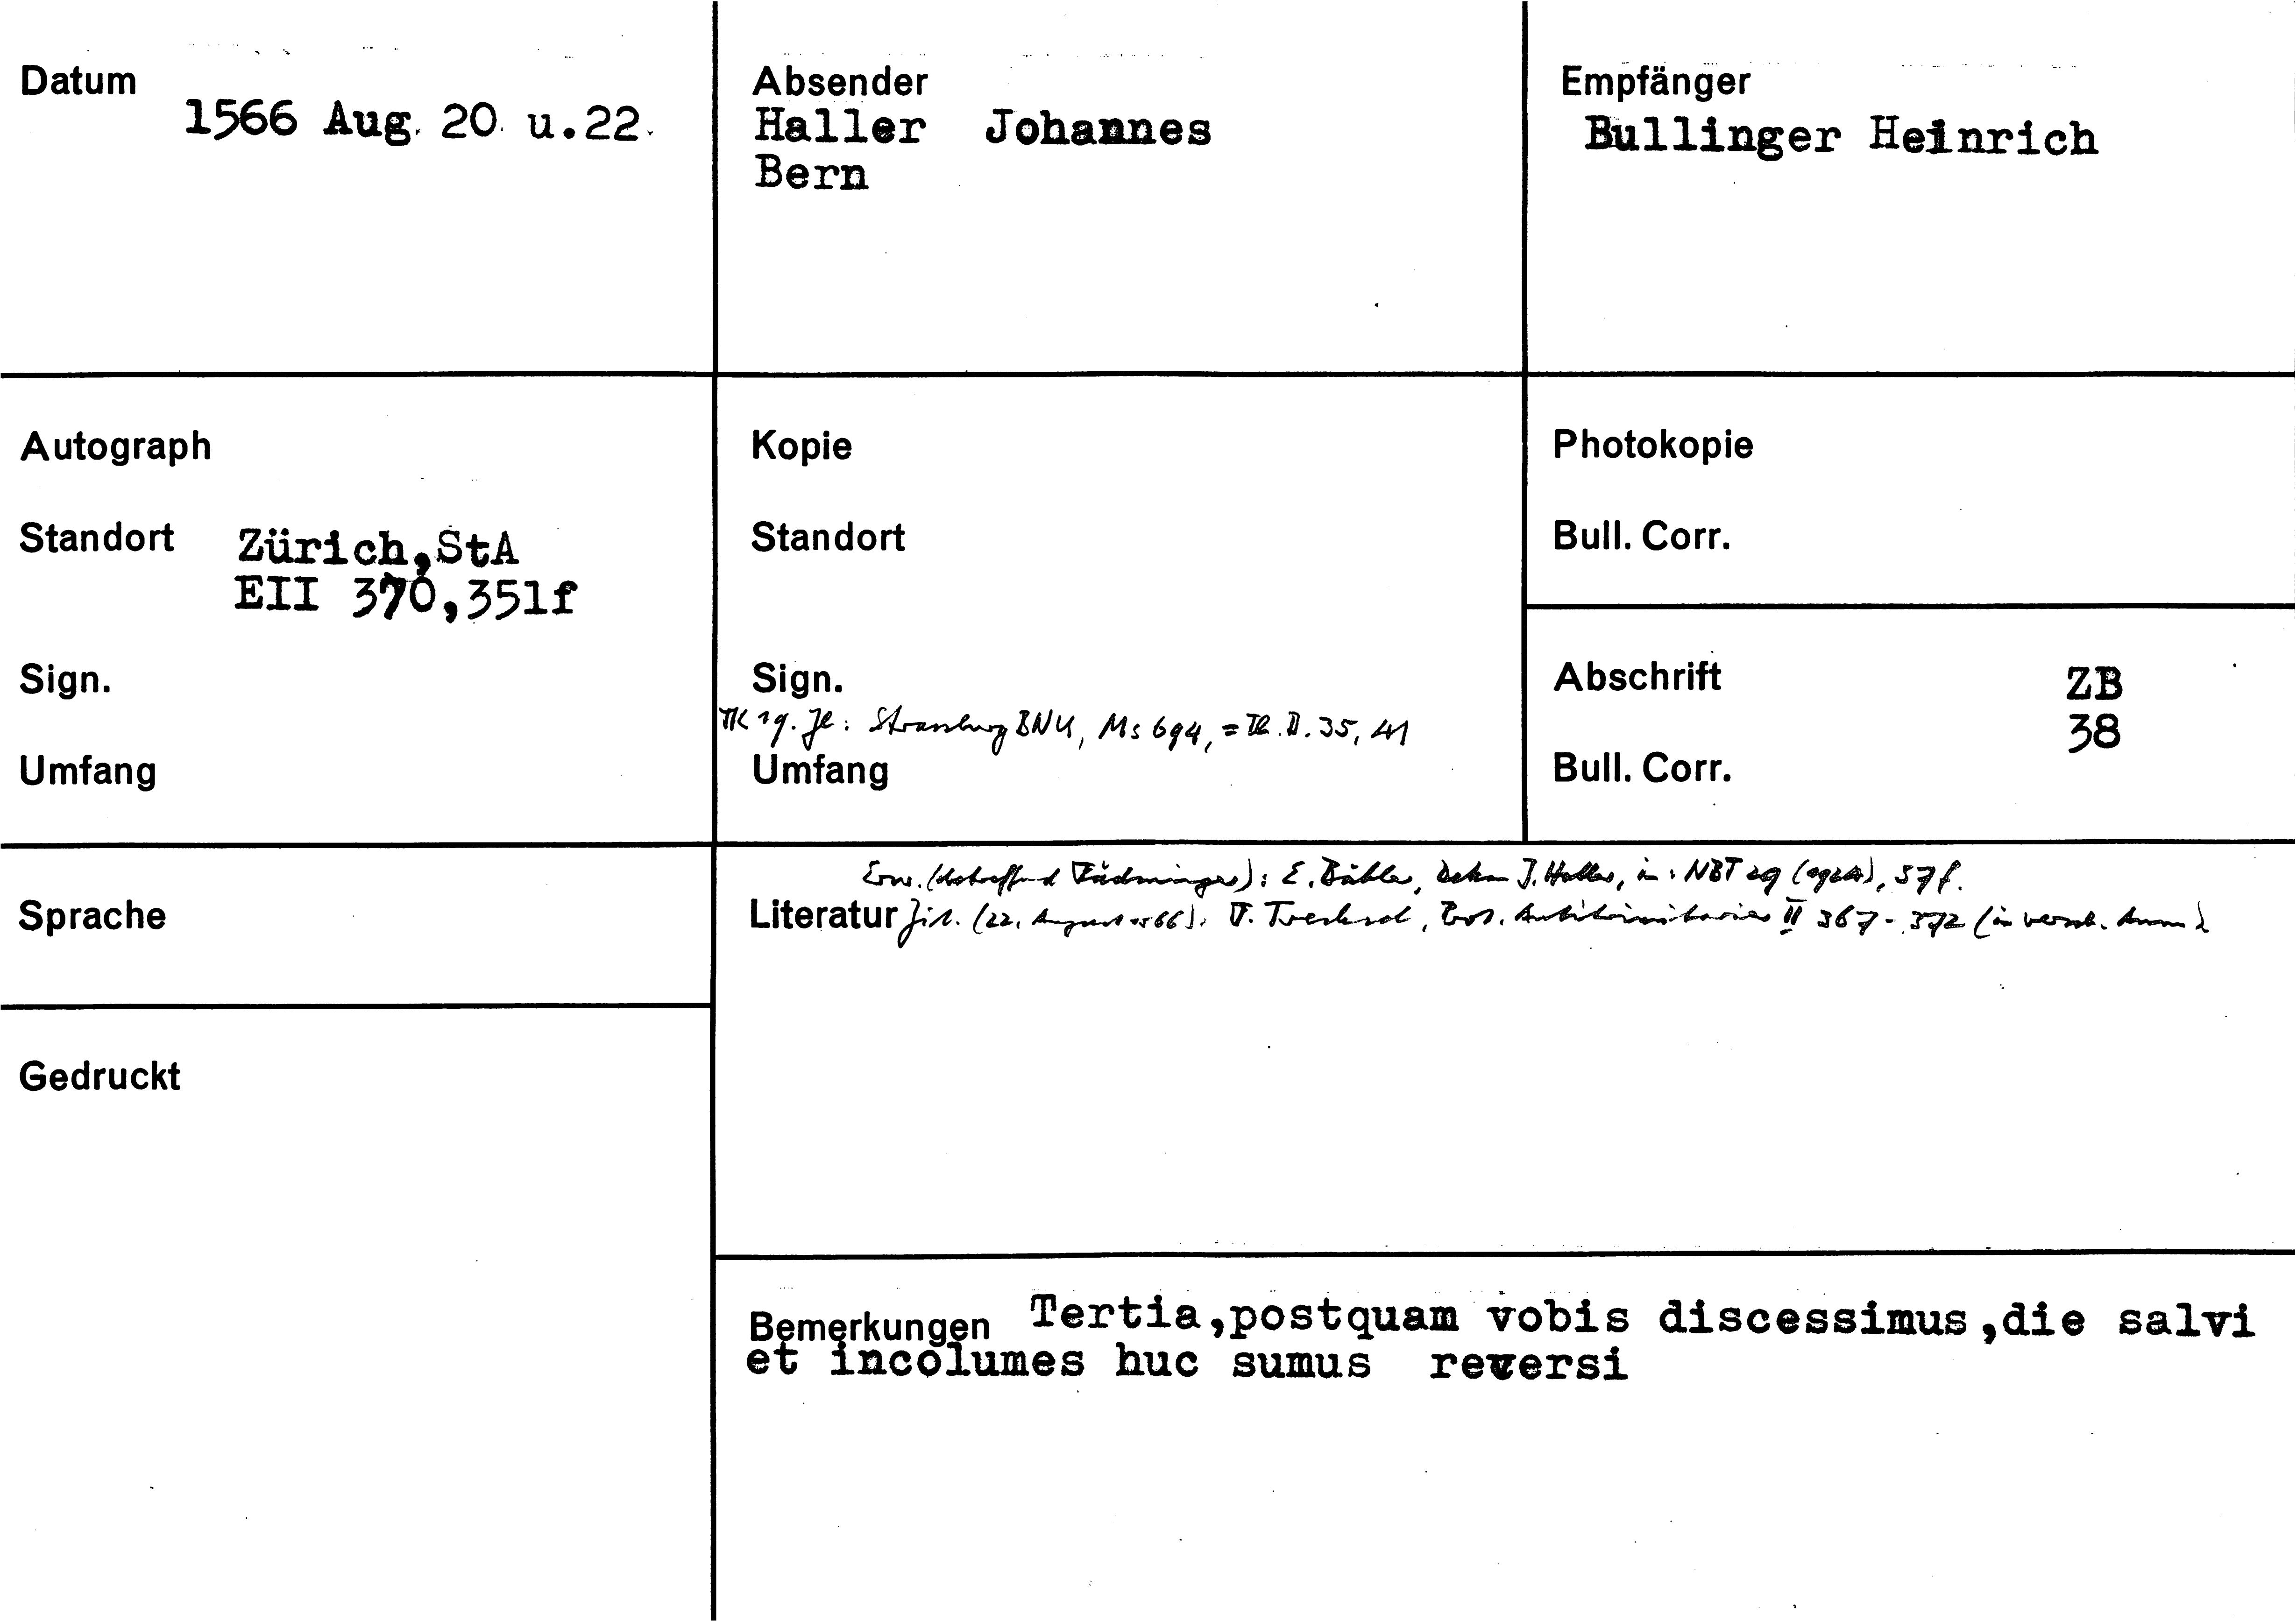 Datum
1566 Aug. 20. u.22.
Absender
Haller Johannes
Bern
Empfänger
Bullinger Heinrich
Autograph
Standort Zürich,StA
EII 370,351f
Sign.
Umfang
Kopie
Standort
Sign.
TK 19. Jh: Strassburg BNU, Ms 694, = Th. II. 35, 41
Umfang
Photokopie
Bull. Corr.
Abschrift ZB
38
Bull. Corr.
Sprache
Gedruckt
Erw. (betreffend Fädminger): E. Bähler, Dekan J. Haller, in: NBT 29 (1924), 57f.
Literatur Zit. (22. August 1566): F. Trechsel, Prot. Antitrinitarier II 367-372 (in versch. Anm.)
Bemerkungen Tertia,postquam vobis discessimus,die salvi
et incolumes huc sumus reversi